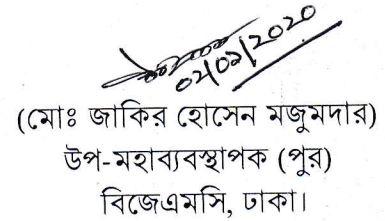 02/02/2020
(মোঃ জাকির হোসেন মজুমদার)
উপ-মহাব্যবস্থাপক (পুর)
বিজেএমসি, ঢাকা।